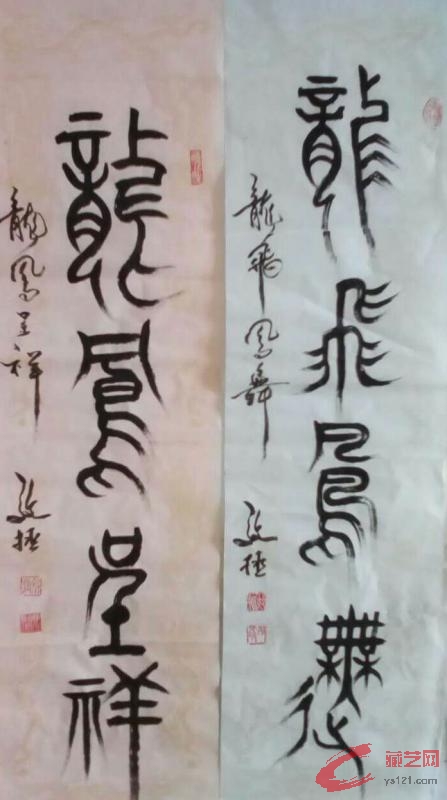 龍飛鳳舞
龍飛鳳舞
龍鳳呈祥
龍鳳呈祥
藏艺网
ys121.com